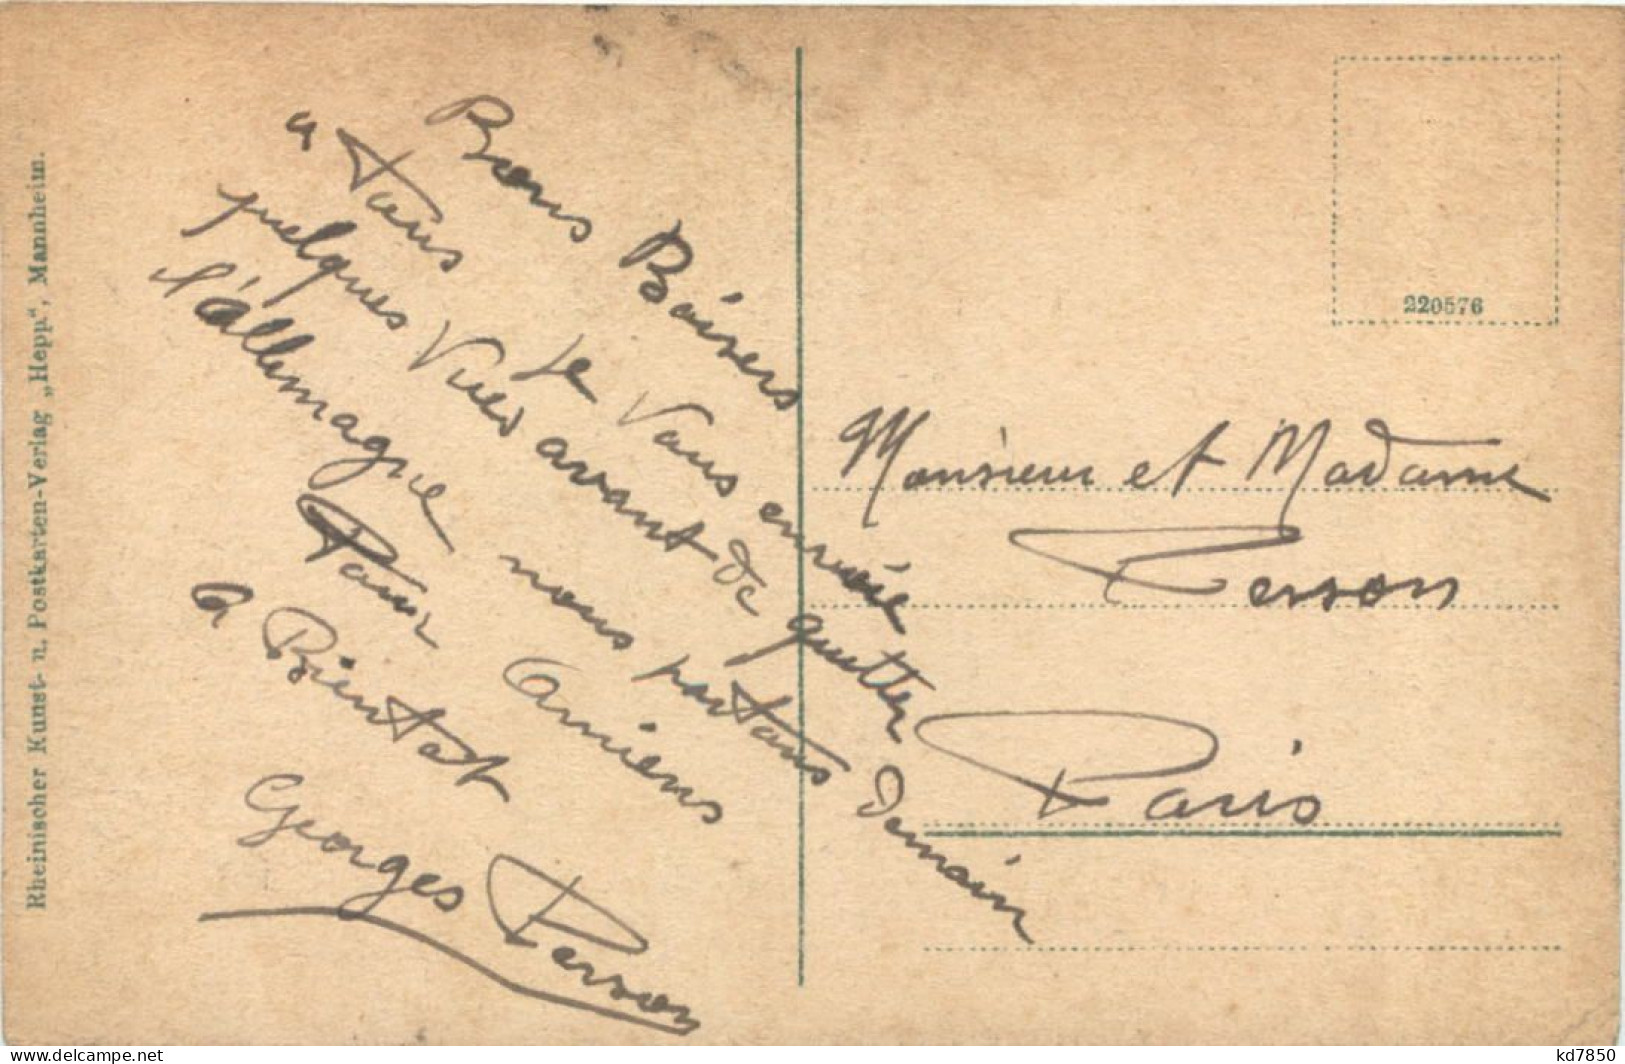 Bons Baisers
a Tous je vous envoie
quelques vues avant de quitter
l'allemagne nous partons demain
Pour Amiens
a Bientot
Georges Person
Monsieur et Madame
Person
Paris
220576
Rheinischer Kunst- u. Postkarten-Verlag „Hepp“, Mannheim.
www.delcampe.net
kd7850